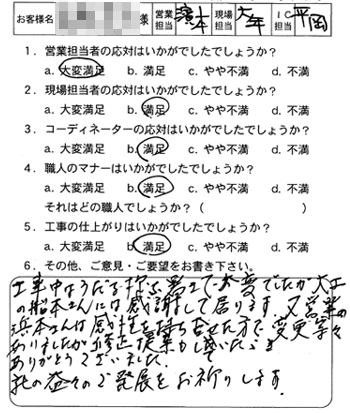 お客様名 様 営業担当 濱本 現場担当 大年 IC担当 平岡
1．営業担当者の応対はいかがでしたでしょうか？
a. 大変満足 b. 満足 c. やや不満 d. 不満
2．現場担当者の応対はいかがでしたでしょうか？
a. 大変満足 b. 満足 c. やや不満 d. 不満
3．コーディネーターの応対はいかがでしたでしょうか？
a. 大変満足 b. 満足 c. やや不満 d. 不満
4．職人のマナーはいかがでしたでしょうか？
a. 大変満足 b. 満足 c. やや不満 d. 不満
それはどの職人でしょうか？（ ）
5．工事の仕上がりはいかがでしたでしょうか？
a. 大変満足 b. 満足 c. やや不満 d. 不満
6．その他、ご意見・ご要望をお書き下さい。
工事中はうだる様な暑さで大変でしたが大工
の松本さんには感謝して居ります。又営業の
浜本さんは感性を持ち合せた方で、変更等々
ありましたが 提案も頂いたりと
ありがとうございました。
社の益々のご発展をお祈りします。